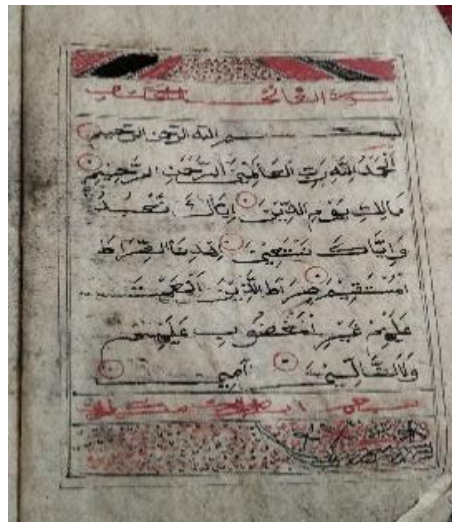 سورة الفاتحة الكتاب
بسم الله الرحمن الرحيم
اَلْحَمْدُ لِلَّهِ رَبِّ الْعَالَمِينَ الرَّحْمَنِ الرَّحِيمِ
مَالِكِ يَوْمِ الدِّينِ إِيَّاكَ نَعْبُدُ
وَإِيَّاكَ نَسْتَعِينُ اِهْدِنَا الصِّرَاطَ
الْمُسْتَقِيمَ صِرَاطَ الَّذِينَ أَنْعَمْتَ
عَلَيْهِمْ غَيْرِ الْمَغْضُوبِ عَلَيْهِمْ
وَلَا الضَّالِّينَ آمين